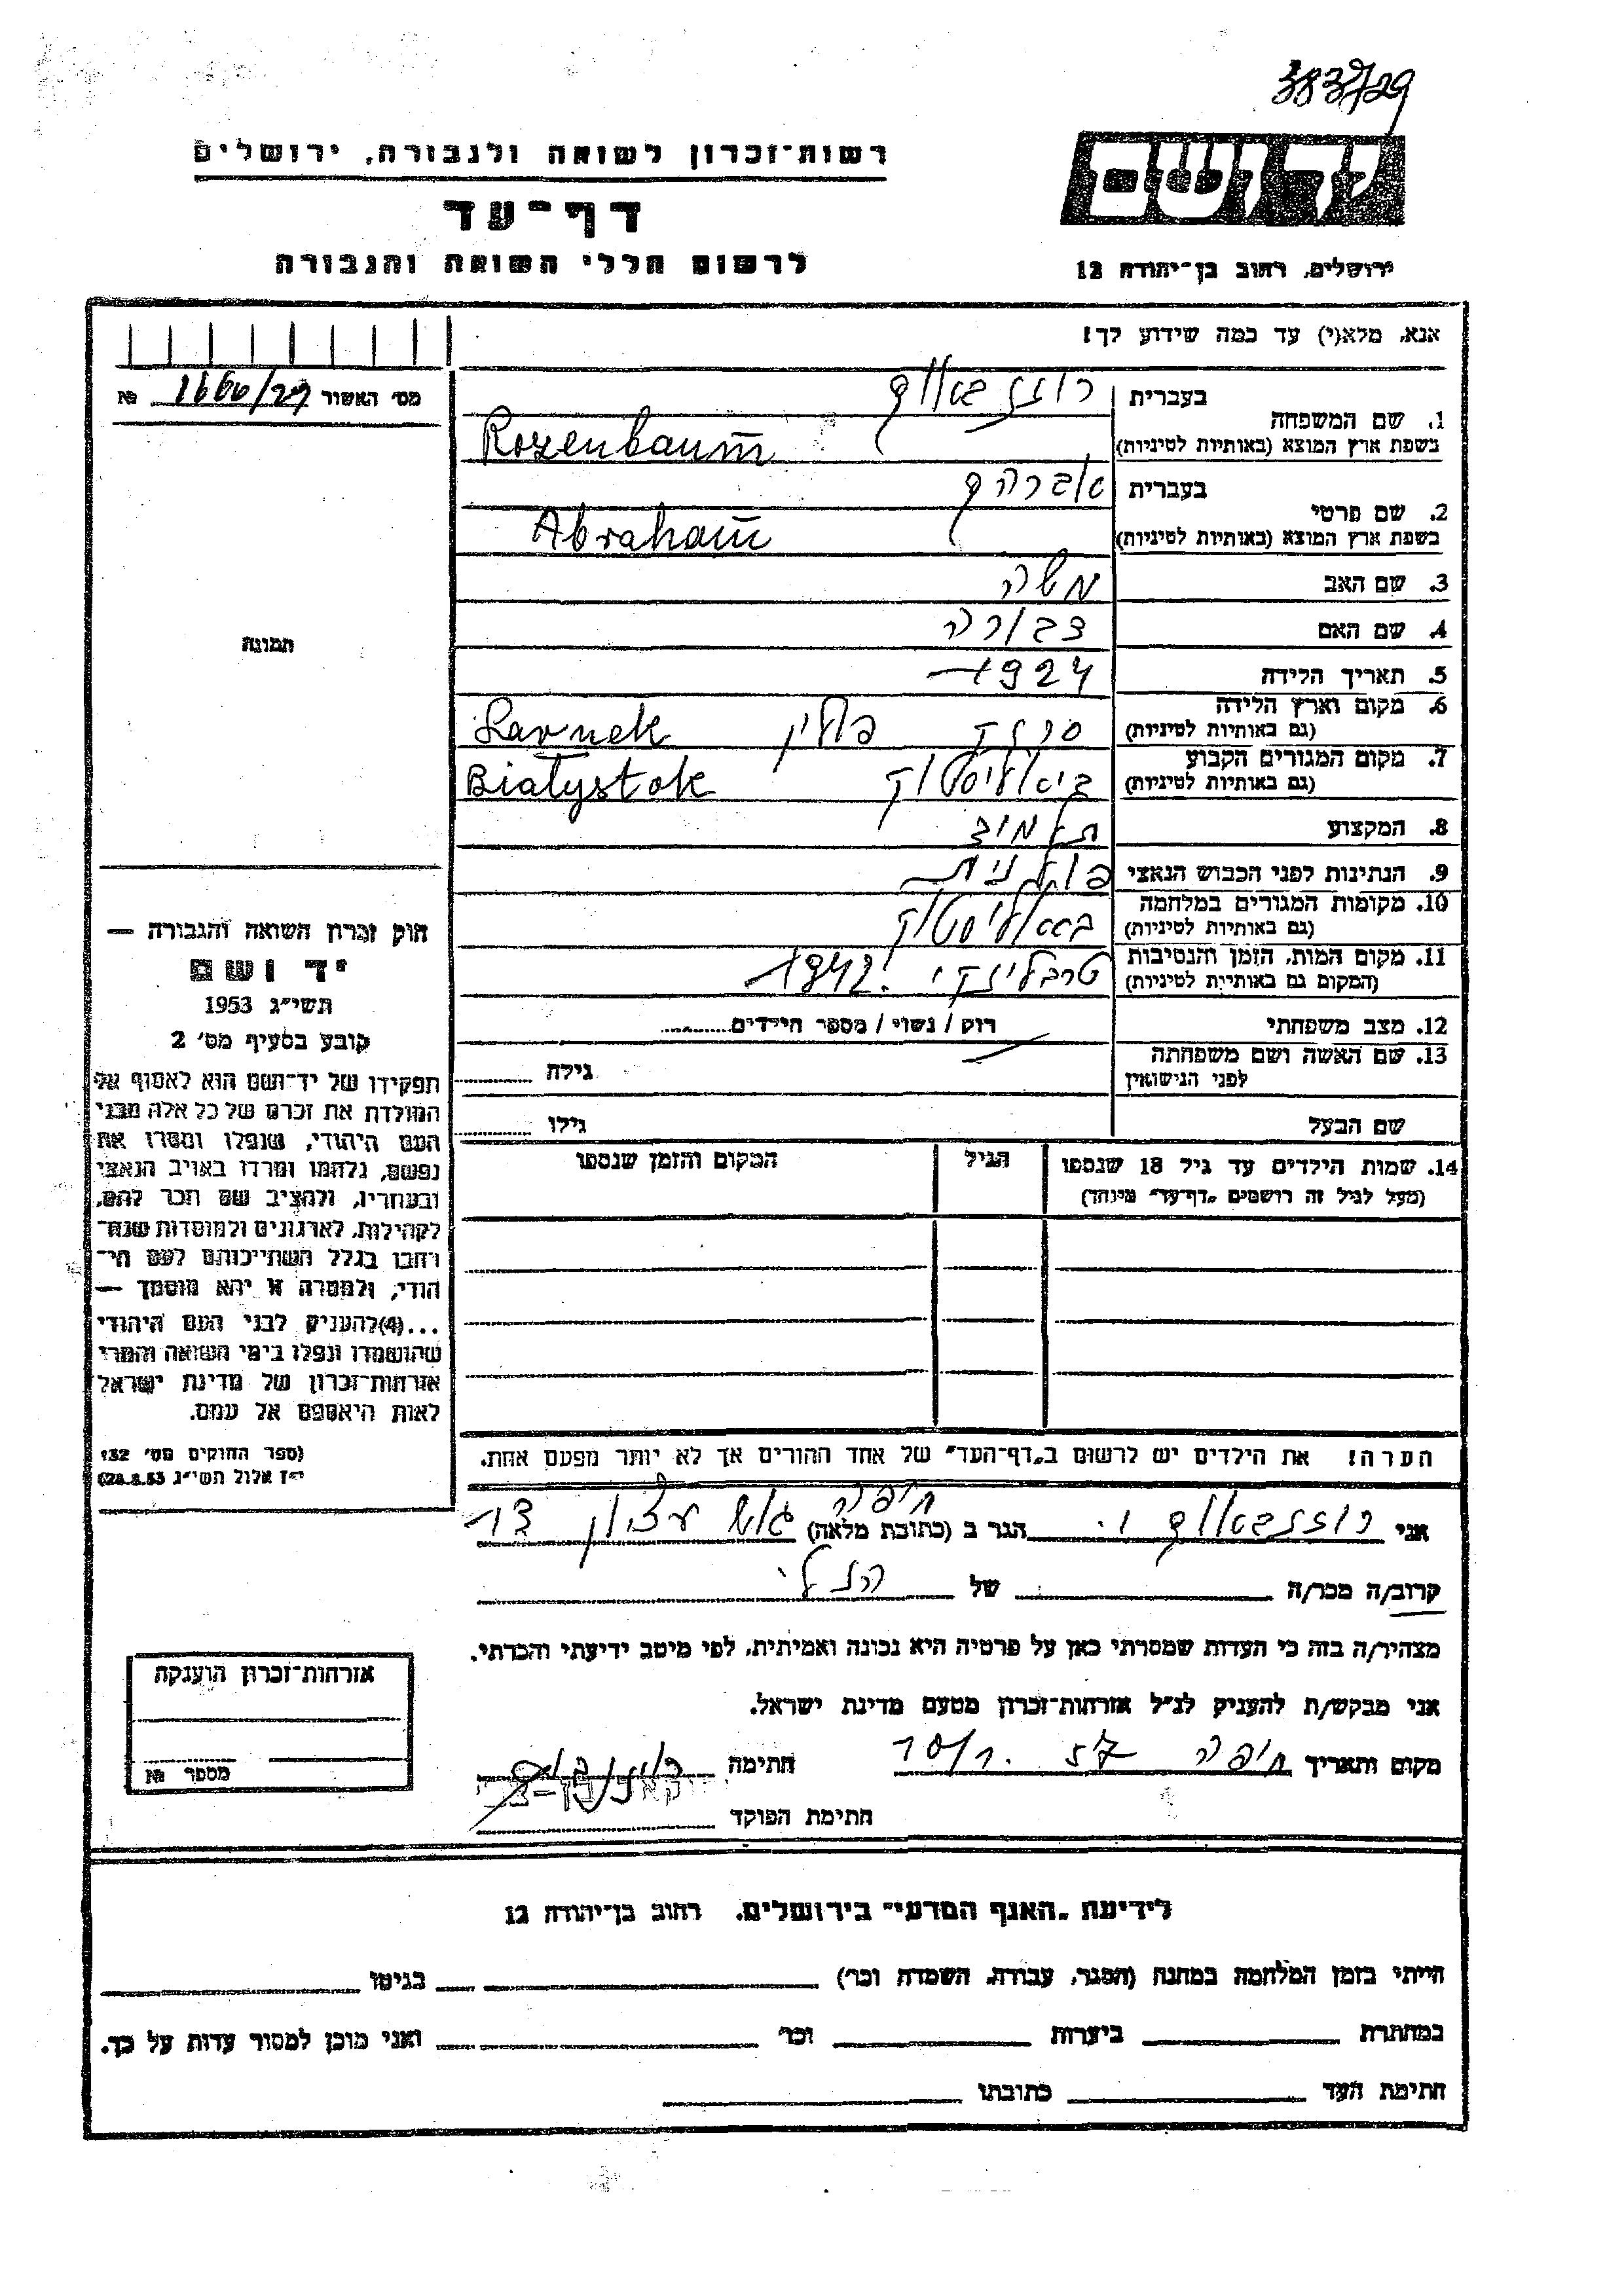 383/29
רשות־זכרון לשואה ולגבורה, ירושלים
יד ושם
דף־עד
לרשום חללי השואה והגבורה
ירושלים, רחוב בן־יהודה 12
אנא, מלא(י) עד כמה שידוע לך!
מס' האשור 1666/29 №
1. שם המשפחה
בעברית רוזנבאום
בשפת ארץ המוצא (באותיות לטיניות) Rozenbaum
2. שם פרטי
בעברית אברהם
בשפת ארץ המוצא (באותיות לטיניות) Abraham
3. שם האב משה
4. שם האם דבורה
תמונה
5. תאריך הלידה 1924
6. מקום וארץ הלידה
(גם באותיות לטיניות) פולין
7. מקום המגורים הקבוע
(גם באותיות לטיניות) ביאליסטוק Białystok
8. המקצוע תלמיד
9. הנתינות לפני הכבוש הנאצי פולנית
10. מקומות המגורים במלחמה
(גם באותיות לטיניות) ביאליסטוק
11. מקום המות, הזמן והנסיבות
(המקום גם באותיות לטיניות) טרבלינקי 1942
12. מצב משפחתי רוק / נשוי / מספר הילדים
13. שם האשה ושם משפחתה
לפני הנישואין
גילה
שם הבעל גילו
14. שמות הילדים עד גיל 18 שנספו
(מעל לגיל זה רושמים „דף־עד" מיוחד)
הגיל
המקום והזמן שנספו
חוק זכרון השואה והגבורה —
יד ושם
תשי"ג 1953
קובע בסעיף מס' 2
תפקידו של יד־ושם הוא לאסוף אל
המולדת את זכרם של כל אלה מבני
העם היהודי, שנפלו ומסרו את
נפשם, נלחמו ומרדו באויב הנאצי
ובעוזריו, ולהציב שם וזכר להם,
לקהילות, לארגונים ולמוסדות שנח־
רבו בגלל השתייכותם לעם הי־
הודי, ולמטרה זו יהא מוסמך —
...(4)להעניק לבני העם היהודי
שהושמדו ונפלו בימי השואה והמרי
אזרחות־זכרון של מדינת ישראל
לאות היאספם אל עמם.
(ספר החוקים מס' 132
י"ז אלול תשי"ג 28.8.53)
הערה! את הילדים יש לרשום ב„דף־העד" של אחד ההורים אך לא יותר מפעם אחת.
אני רוזנבאום י. הגר ב (כתובת מלאה) חיפה גוש עציון 13
קרוב/ה מכר/ה של הנ"ל
מצהיר/ה בזה כי העדות שמסרתי כאן על פרטיה היא נכונה ואמיתית, לפי מיטב ידיעתי והכרתי.
אני מבקש/ת להעניק לנ"ל אזרחות־זכרון מטעם מדינת ישראל.
מקום ותאריך חיפה 10/1. 57 חתימה
חתימת הפוקד
אזרחות־זכרון הוענקה
מספר №
לידיעת „האגף המדעי" בירושלים, רחוב בן־יהודה 12
הייתי בזמן המלחמה במחנה (הסגר, עבודה, השמדה וכו') בגיטו
במחתרת ביערות וכו' ואני מוכן למסור עדות על כך.
חתימת העד כתובתו